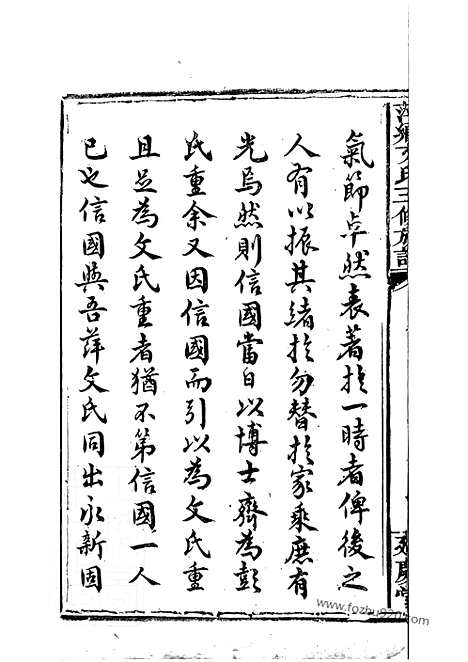 萍鄉文氏三修族譜
氣節卓然表著於一時者俾後之
人有以振其緒於勿替於家乘庶有
光焉然則信國當日以博士齊為彭
氏重余又因信國而引以為文氏重
且足為文氏重者猶不第信國一人
已也信國與吾萍文氏同出永新固
www.fozhu920.com